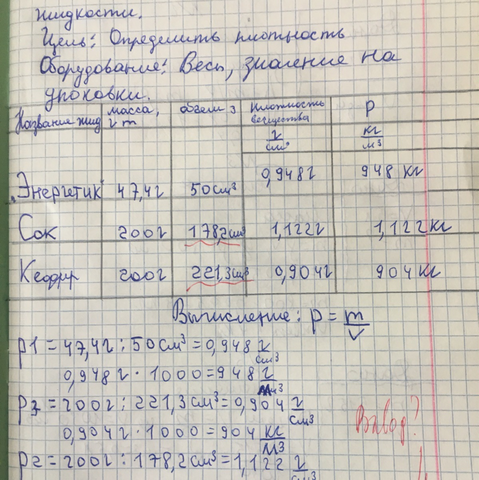 жидкости.
Цель: Определить плотность
Оборудование: Весы, значение на
упоковки.
Название жид масса, г m объем 3 плотность вещества г/см³ P кг/м³
"Энергетик" 47,4г 50см³ 0,948г 948 кг
Сок 200г 178,2см³ 1,122г 1,122кг
Кефир 200г 221,3см³ 0,904г 904кг
Вычисление: P = m/V
p1 = 47,4г : 50см³ = 0,948 г/см³
0,948г · 1000 = 948 г/м³
p3 = 200г : 221,3см³ = 0,904 г/см³
0,904г · 1000 = 904 кг/м³
p2 = 200г : 178,2см³ = 1,122 г/см³
Вывод?